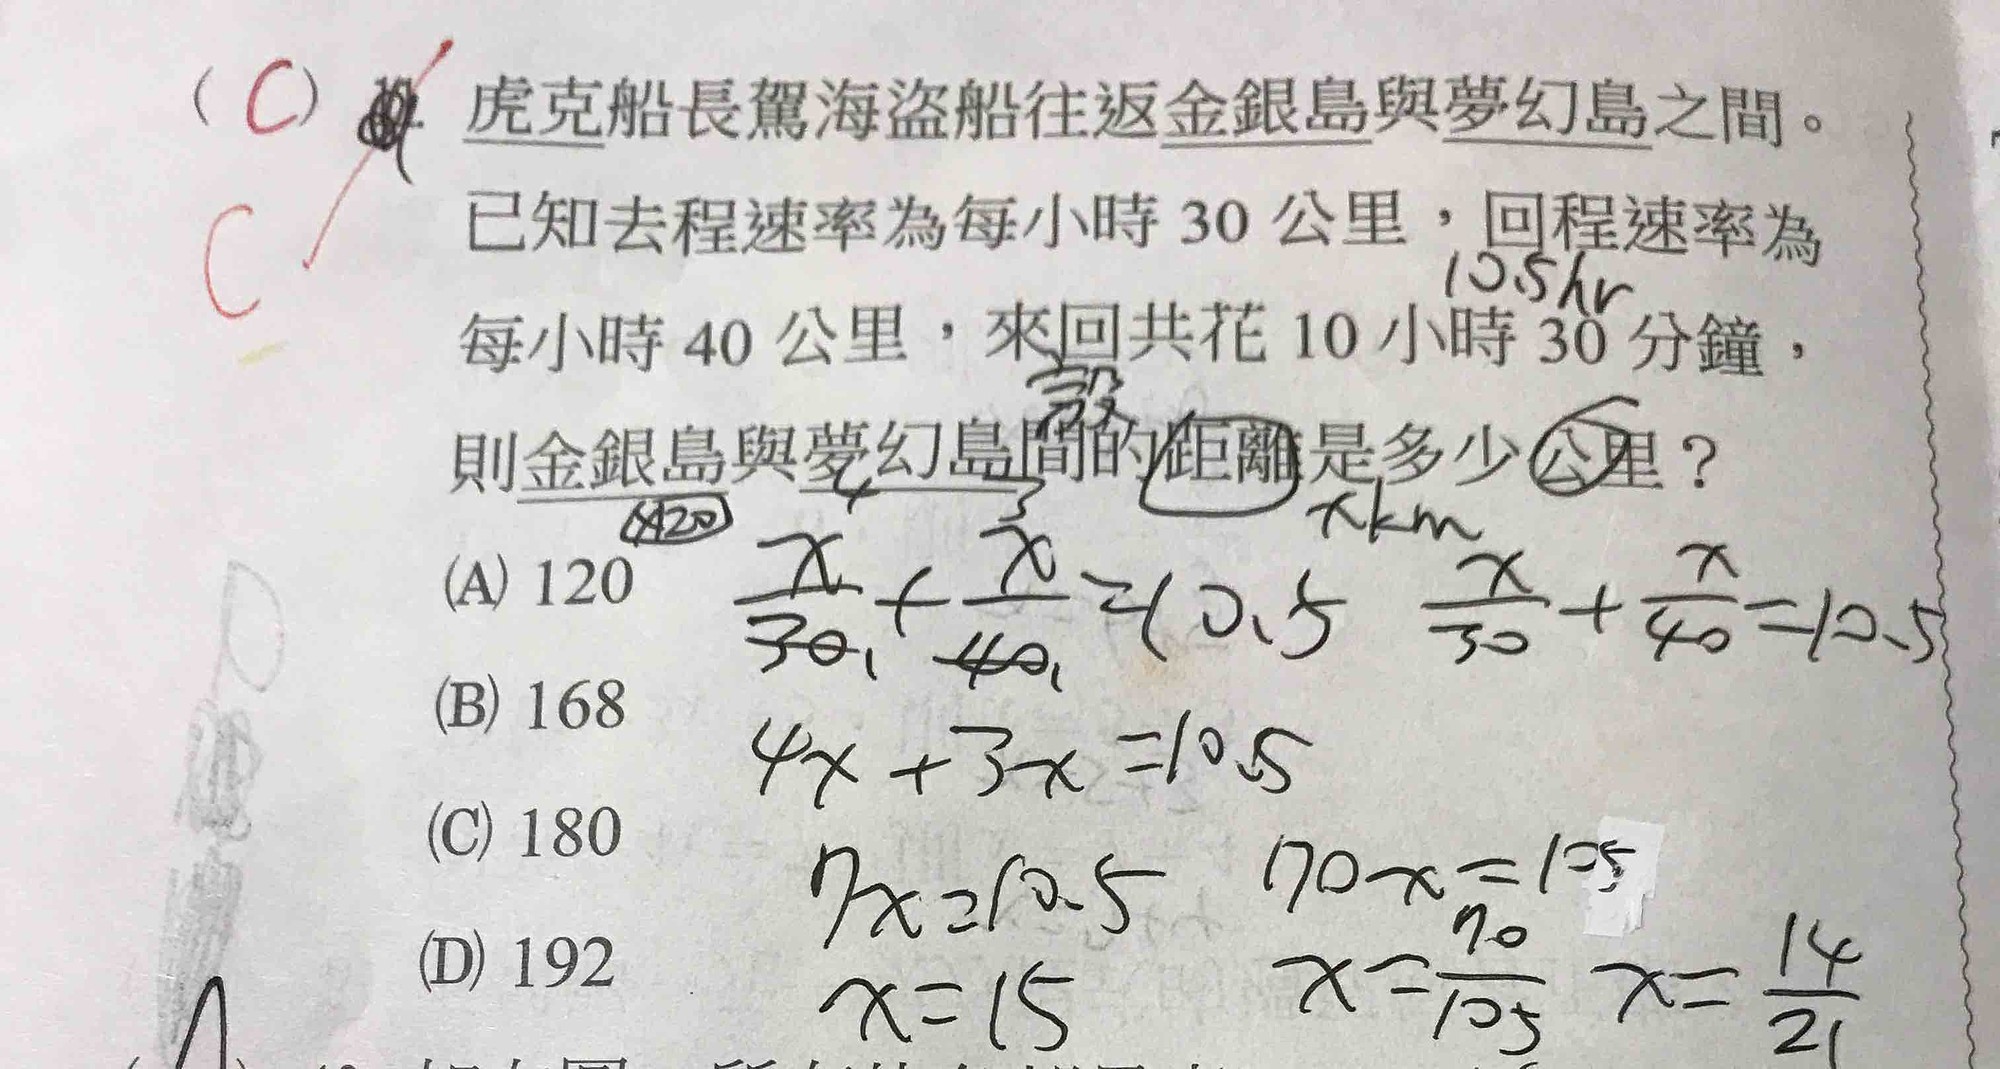 ( C ) 虎克船長駕海盜船往返金銀島與夢幻島之間。
C 已知去程速率為每小時 30 公里，回程速率為
10.5hr
每小時 40 公里，來回共花 10 小時 30 分鐘，
設
則金銀島與夢幻島間的距離是多少公里？
x km
(A) 120
x/30 + x/40 = 10.5
x/30 + x/40 = 10.5
(B) 168
4x + 3x = 10.5
(C) 180
7x = 10.5
70x = 105
(D) 192
x = 15
x = 70/105
x = 14/21